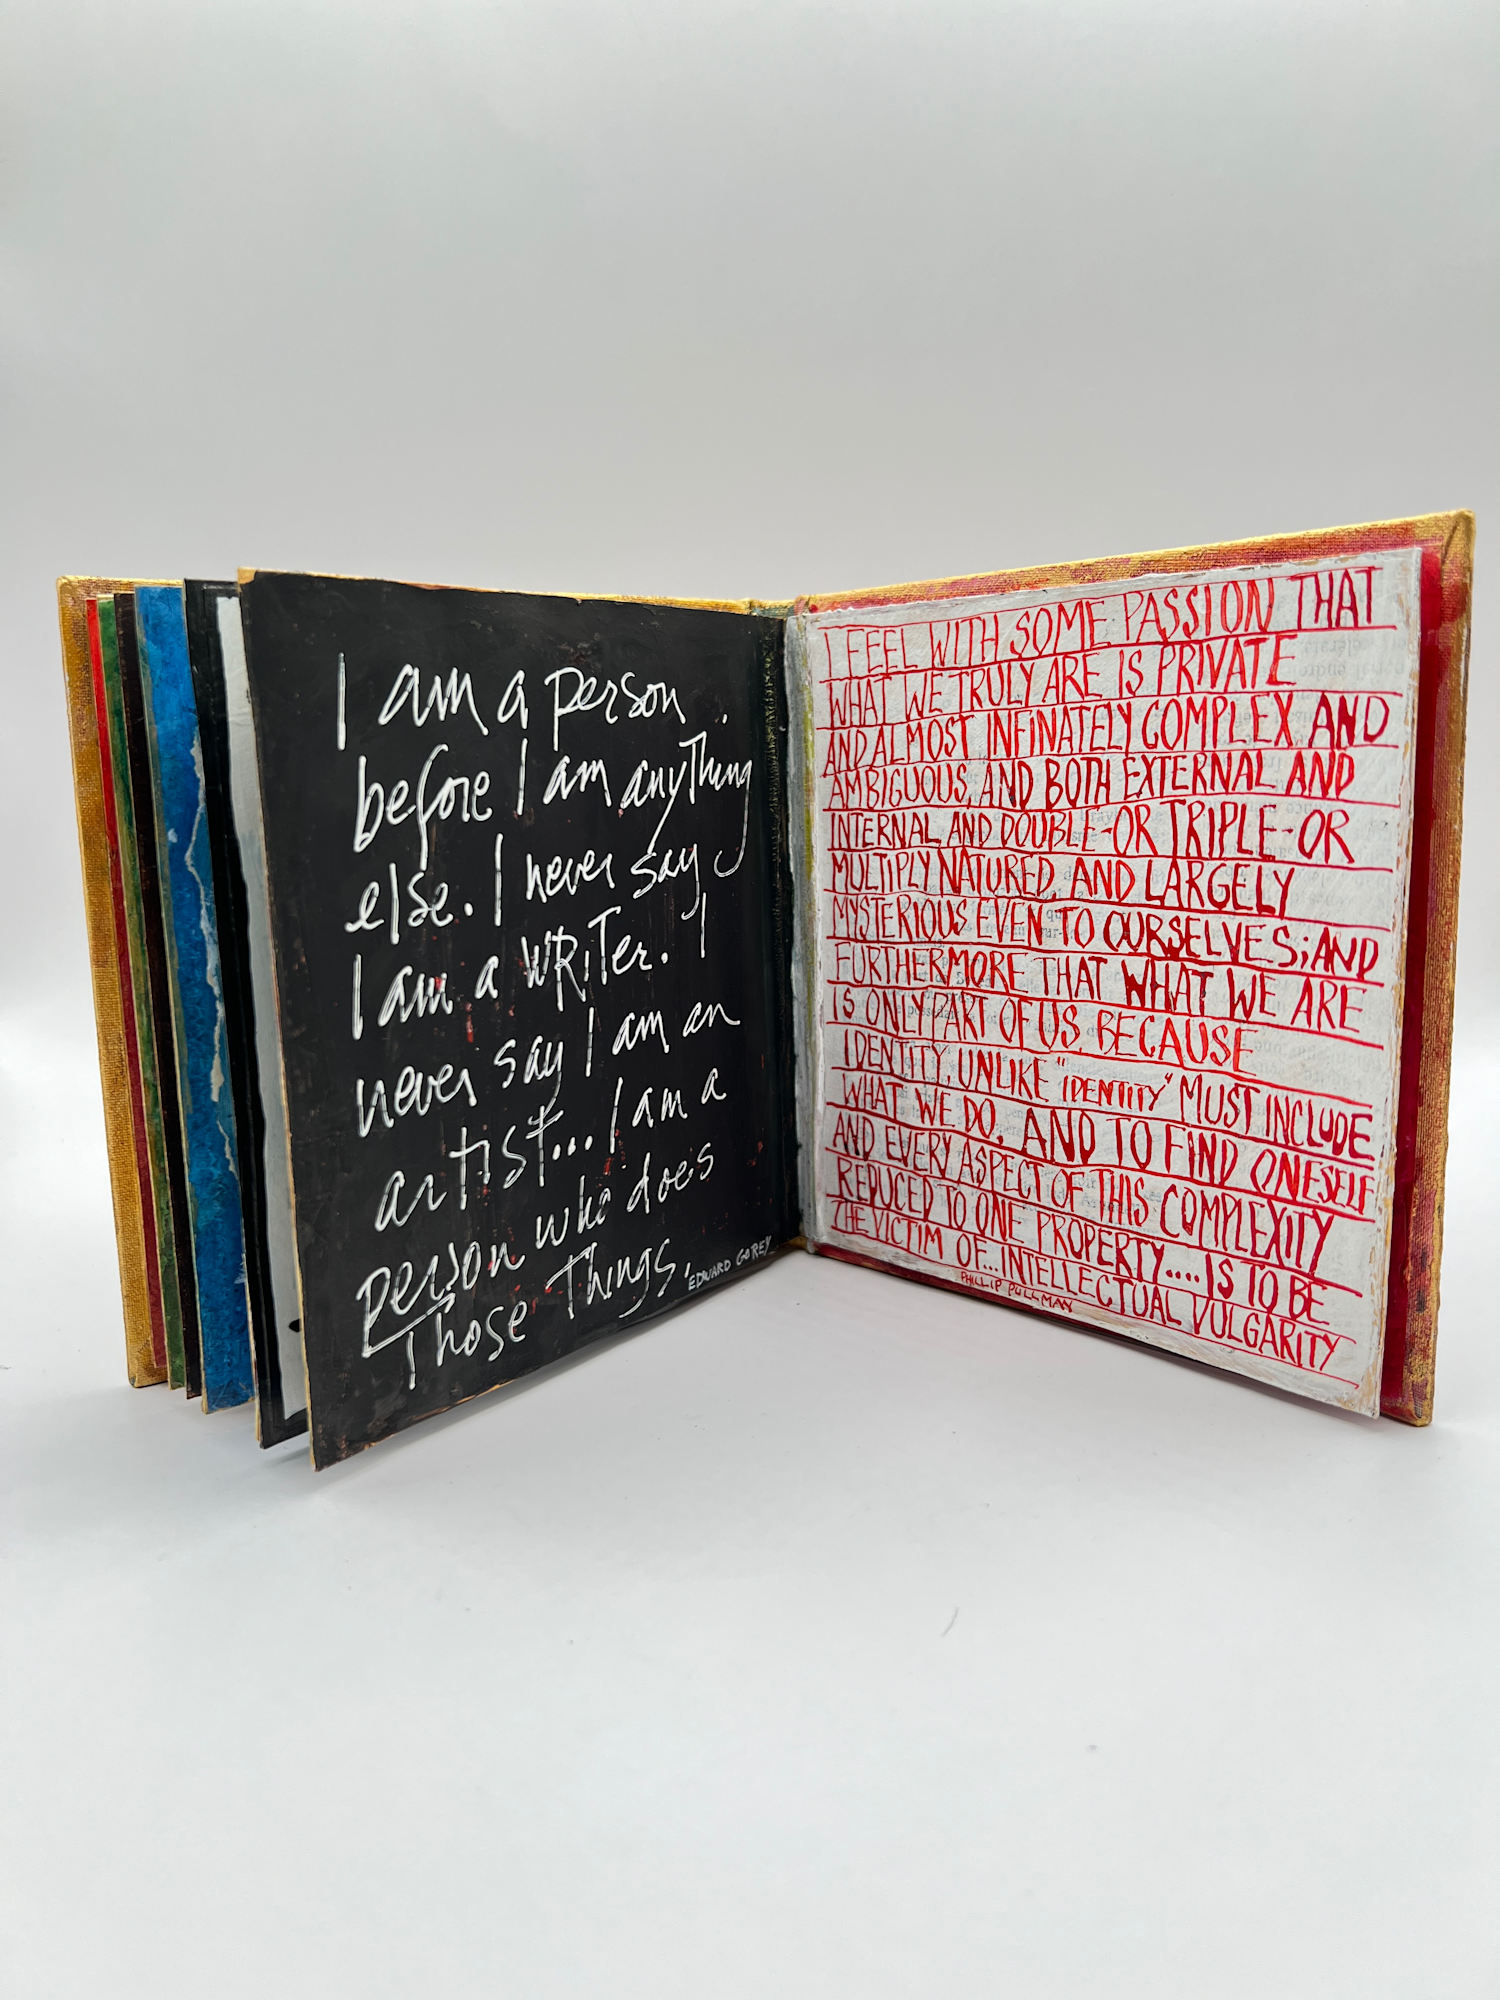 I am a person
before I am anything
else. I never say
I am a WRiTer. I
never say I am an
artist... I am a
person who does
Those Things.
EDWARD GOREY
I FEEL WITH SOME PASSION THAT
WHAT WE TRULY ARE IS PRIVATE
AND ALMOST INFINATELY COMPLEX AND
AMBIGUOUS, AND BOTH EXTERNAL AND
INTERNAL AND DOUBLE-OR TRIPLE-OR
MULTIPLY NATURED, AND LARGELY
MYSTERIOUS EVEN TO OURSELVES; AND
FURTHERMORE THAT WHAT WE ARE
IS ONLY PART OF US, BECAUSE
IDENTITY, UNLIKE "IDENTITY" MUST INCLUDE
WHAT WE DO. AND TO FIND ONESELF
AND EVERY ASPECT OF THIS COMPLEXITY
REDUCED TO ONE PROPERTY.... IS TO BE
THE VICTIM OF... INTELLECTUAL VULGARITY
PHILLIP PULLMAN